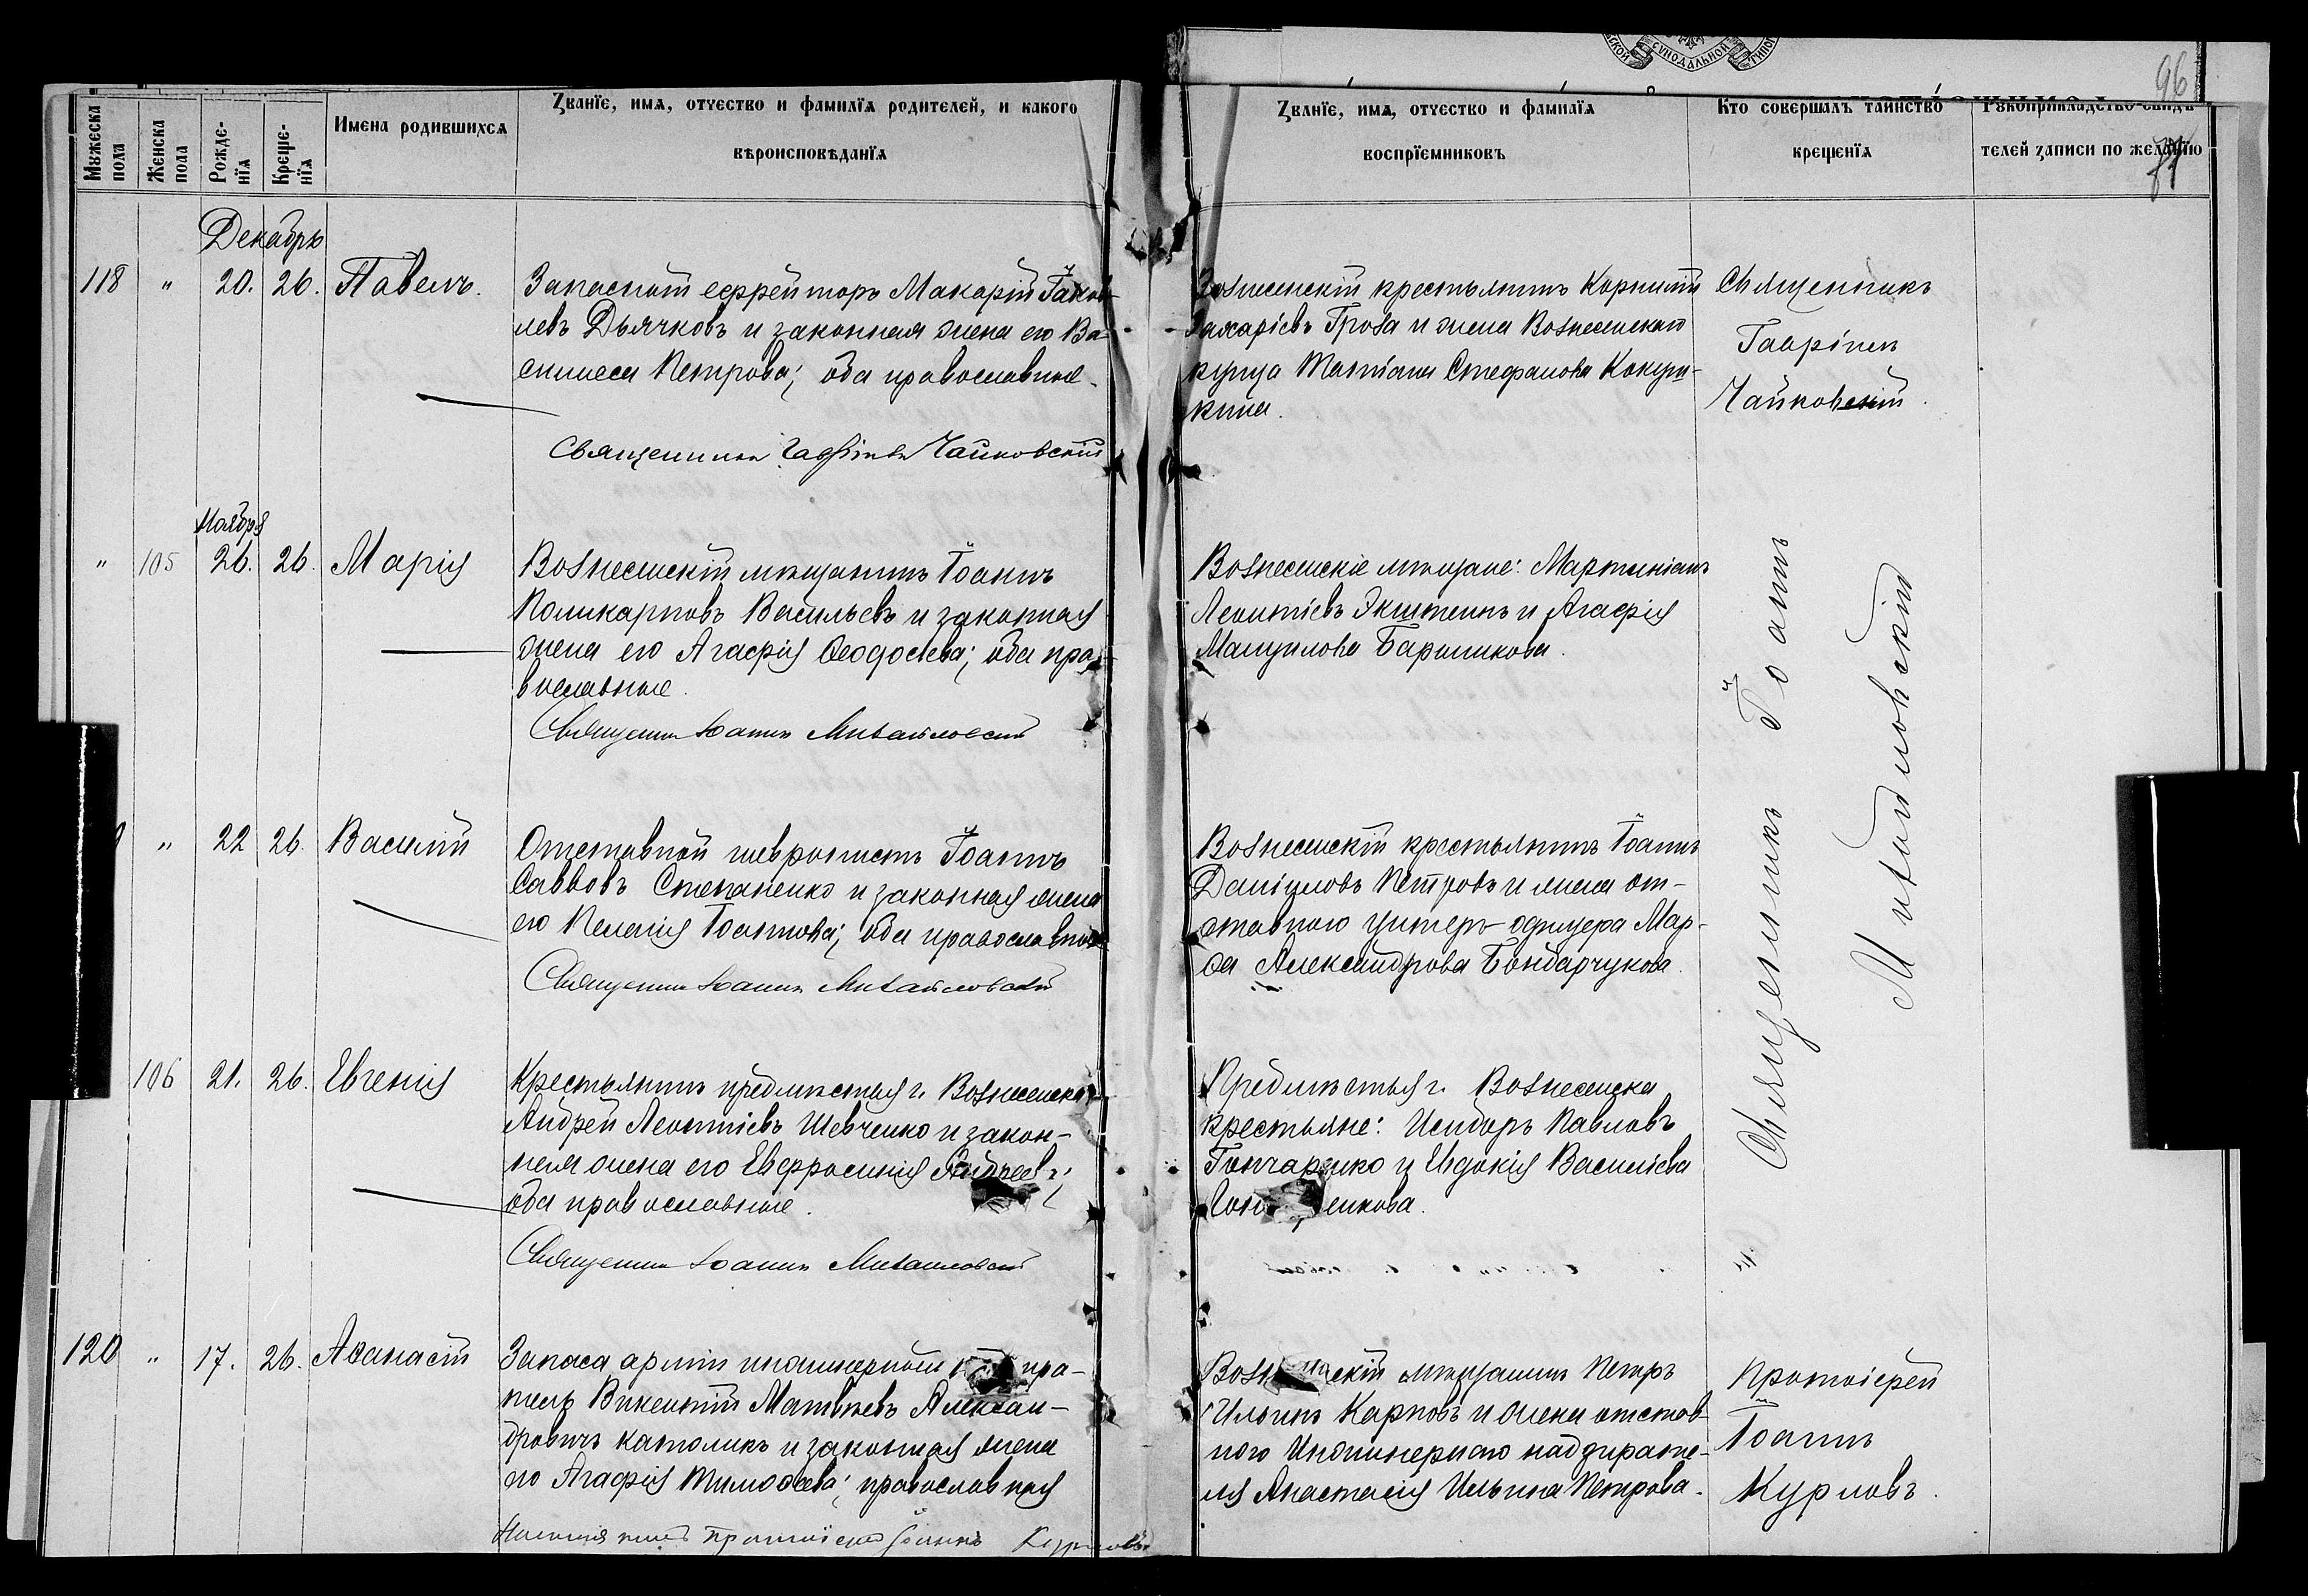 СѴНОДАЛЬНОЙ
96
Мꙋжеска пола
Женска пола
Рожденїѧ
Крещенїѧ
Имена родившихсѧ
Ꙁванїе, имѧ, отчество и фамилїѧ родителей, и какого
вѣроисповѣданїѧ
Ꙁванїе, имѧ, отчество и фамилїѧ
воспрїемниковъ
Кто совершалъ таинство
крещенїѧ
Рꙋкоприкладство свидѣ
телей ꙁаписи по желанїю
Декабрь
118 " 20. 26. Павелъ.
Запасной ефрейторъ Макарій Іаков-
левъ Дьячковъ и законная жена его Ва-
силиса Петрова; оба православные.
Священникъ Гавріилъ Чайковскій
Вознесенскій крестьянинъ Корнилій
Захаріевъ Гроза и жена Вознесенскаго
купца Татіана Стефанова Кокуш-
кина.
Священникъ
Гавріилъ
Чайковскій.
Ноября
" 105 26. 26. Марія
Вознесенскій мѣщанинъ Іоаннъ
Поликарповъ Васильевъ и законная
жена его Агафія Ѳеодосіева; оба пра-
вославные.
Священникъ Іоаннъ Михайловскій
Вознесенскіе мѣщане: Мартиніанъ
Леонтіевъ Экштеинъ и Агафія
Мануилова Баринкова.
Священникъ Іоаннъ
Михайловскій
" 22 26. Василій
Отставной шевронистъ Іоаннъ
Саввовъ Степаненко и законная жена
его Пелагія Іоаннова; оба православные
Священникъ Іоаннъ Михайловскій
Вознесенскій крестьянинъ Іоаннъ
Даніиловъ Петровъ и жена от-
ставного унтеръ-офицера Мар-
ѳа Александрова Бондарчукова.
106 21. 26. Евгенія
Крестьянинъ предмѣстья г. Вознесенска
Андрей Леонтіевъ Шевченко и закон-
ная жена его Евфросинія
оба православные.
Священникъ Іоаннъ Михайловскій
Предмѣстья г. Вознесенска
крестьяне: Исидоръ Павловъ
Гончаренко и Евдокія Василіева
"
120 " 17. 26. Аѳанасій
Запаса арміи инженерной пра-
тель Викентій Матвѣевъ Алексан-
дровичъ католикъ и законная жена
его Агафія Тимоѳеева; православная
Протоіерей Іоаннъ Курловъ
мѣщанинъ Петръ
Ильинъ Карповъ и жена отстав-
ного Инженернаго надзирате-
ля Анастасія Ильина Петрова.
Протоіерей
Іоаннъ
Курловъ.